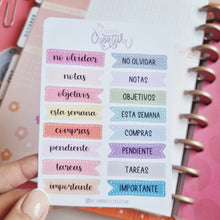 no olvidar NO OLVIDAR
notas NOTAS
objetivos OBJETIVOS
esta semana ESTA SEMANA
compras COMPRAS
pendiente PENDIENTE
tareas TAREAS
importante IMPORTANTE